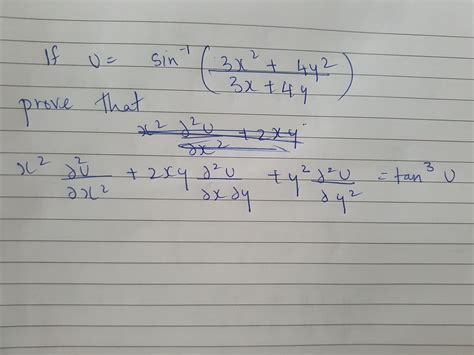 If U = sin⁻¹ (3x² + 4y² / 3x + 4y)
prove that
x² ∂²U / ∂x² + 2xy
x² ∂²U / ∂x² + 2xy ∂²U / ∂x ∂y + y² ∂²U / ∂y² = tan³ U